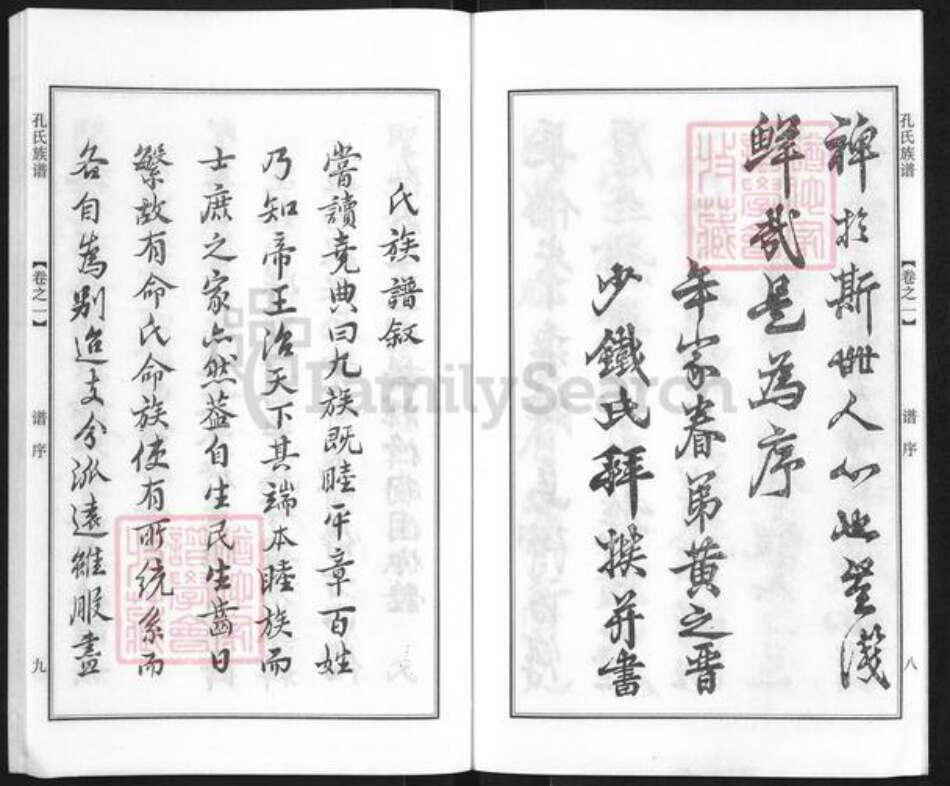 孔氏族谱 【卷之一】 谱序 八
裨於斯世人心岂淺
鲜哉是為序
年家眷弟黄之晋
少鐵氏拜撰并書
氏族譜叙
嘗讀尭典曰九族既睦平章百姓
乃知帝王治天下其端本睦族而
士庶之家亦然葢自生民生齒日
繁故有命氏命族使有所統系而
各自為别迨支分派遠雖服盡
孔氏族谱 【卷之一】 谱序 九
FamilySearch